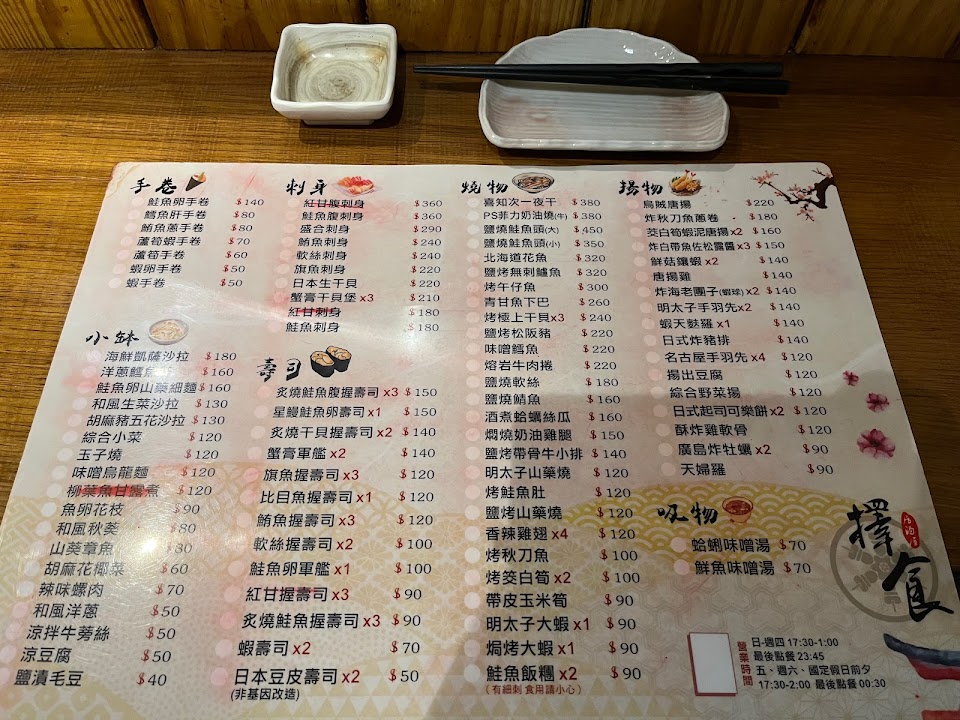 手卷
鮭魚卵手卷 $140
鱈魚肝手卷 $80
鮪魚蔥手卷 $80
蘆筍蝦手卷 $70
蘆筍手卷 $60
蝦卵手卷 $50
蝦手卷 $50
小缽
海鮮凱薩沙拉 $180
洋蔥鱈魚 $160
鮭魚卵山藥細麵 $160
和風生菜沙拉 $130
胡麻豬五花沙拉 $130
綜合小菜 $120
玉子燒 $120
味噌烏龍麵 $120
柳葉魚甘露煮 $120
魚卵花枝 $90
和風秋葵 $80
山葵章魚 $80
胡麻花椰菜 $60
辣味螺肉 $70
和風洋蔥 $50
涼拌牛蒡絲 $50
涼豆腐 $50
鹽漬毛豆 $40
刺身
紅甘腹刺身 $360
鮭魚腹刺身 $360
盛合刺身 $290
鮪魚刺身 $240
軟絲刺身 $240
旗魚刺身 $220
日本生干貝 $220
蟹膏干貝堡 x3 $210
紅甘刺身 $180
鮭魚刺身 $180
壽司
炙燒鮭魚腹握壽司 x3 $150
星鰻鮭魚卵壽司 x1 $150
炙燒干貝握壽司 x2 $140
蟹膏軍艦 x2 $140
旗魚握壽司 x3 $120
比目魚握壽司 x1 $120
鮪魚握壽司 x3 $120
軟絲握壽司 x2 $100
鮭魚卵軍艦 x1 $100
紅甘握壽司 x3 $90
炙燒鮭魚握壽司 x3 $90
蝦壽司 x2 $70
日本豆皮壽司 x2 $50
(非基因改造)
燒物
喜知次一夜干 $380
PS菲力奶油燒(牛) $380
鹽燒鮭魚頭(大) $450
鹽燒鮭魚頭(小) $350
北海道花魚 $320
鹽烤無刺鱸魚 $320
烤午仔魚 $300
青甘魚下巴 $260
烤極上干貝x3 $240
鹽烤松阪豬 $220
味噌鱈魚 $220
熔岩牛肉捲 $220
鹽燒軟絲 $180
鹽燒鯖魚 $160
酒煮蛤蠣絲瓜 $160
燜燒奶油雞腿 $150
鹽烤帶骨牛小排 $140
明太子山藥燒 $120
烤鮭魚肚 $120
鹽烤山藥燒 $120
香辣雞翅 x4 $120
烤秋刀魚 $100
烤筊白筍 x2 $100
帶皮玉米筍 $90
明太子大蝦 x1 $90
焗烤大蝦 x1 $90
鮭魚飯糰 x2 $90
(有細刺 食用請小心)
揚物
烏賊唐揚 $220
炸秋刀魚蔥卷 $180
茭白筍蝦泥唐揚 x2 $160
炸白帶魚佐松露醬 x3 $150
鮮菇鑲蝦 x2 $140
唐揚雞 $140
炸海老團子(蝦球) x2 $140
明太子手羽先 x2 $140
蝦天麩羅 x1 $140
日式炸豬排 $140
名古屋手羽先 x4 $120
揚出豆腐 $120
綜合野菜揚 $120
日式起司可樂餅 x2 $120
酥炸雞軟骨 $120
廣島炸牡蠣 x2 $90
天婦羅 $90
吸物
蛤蜊味噌湯 $70
鮮魚味噌湯 $70
擇食
居酒屋
營業時間
日-週四 17:30-1:00
最後點餐 23:45
五、週六、國定假日前夕
17:30-2:00 最後點餐 00:30